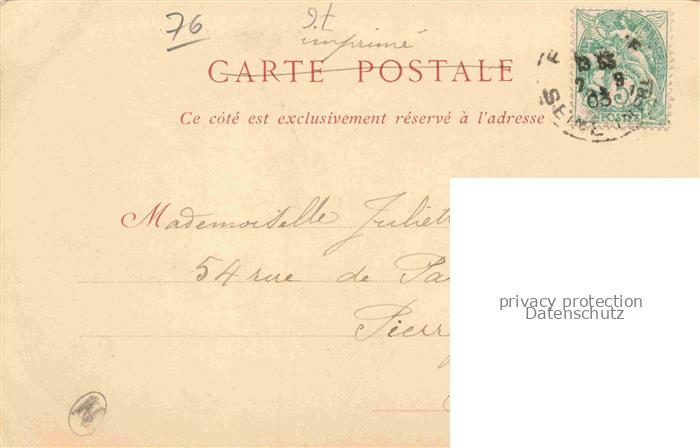 76
et
imprimé
CARTE POSTALE
Ce côté est exclusivement réservé à l'adresse
5
POSTES
03
SEINE
Mademoiselle Juliett
54 rue de Pa
Pierr
privacy protection
Datenschutz